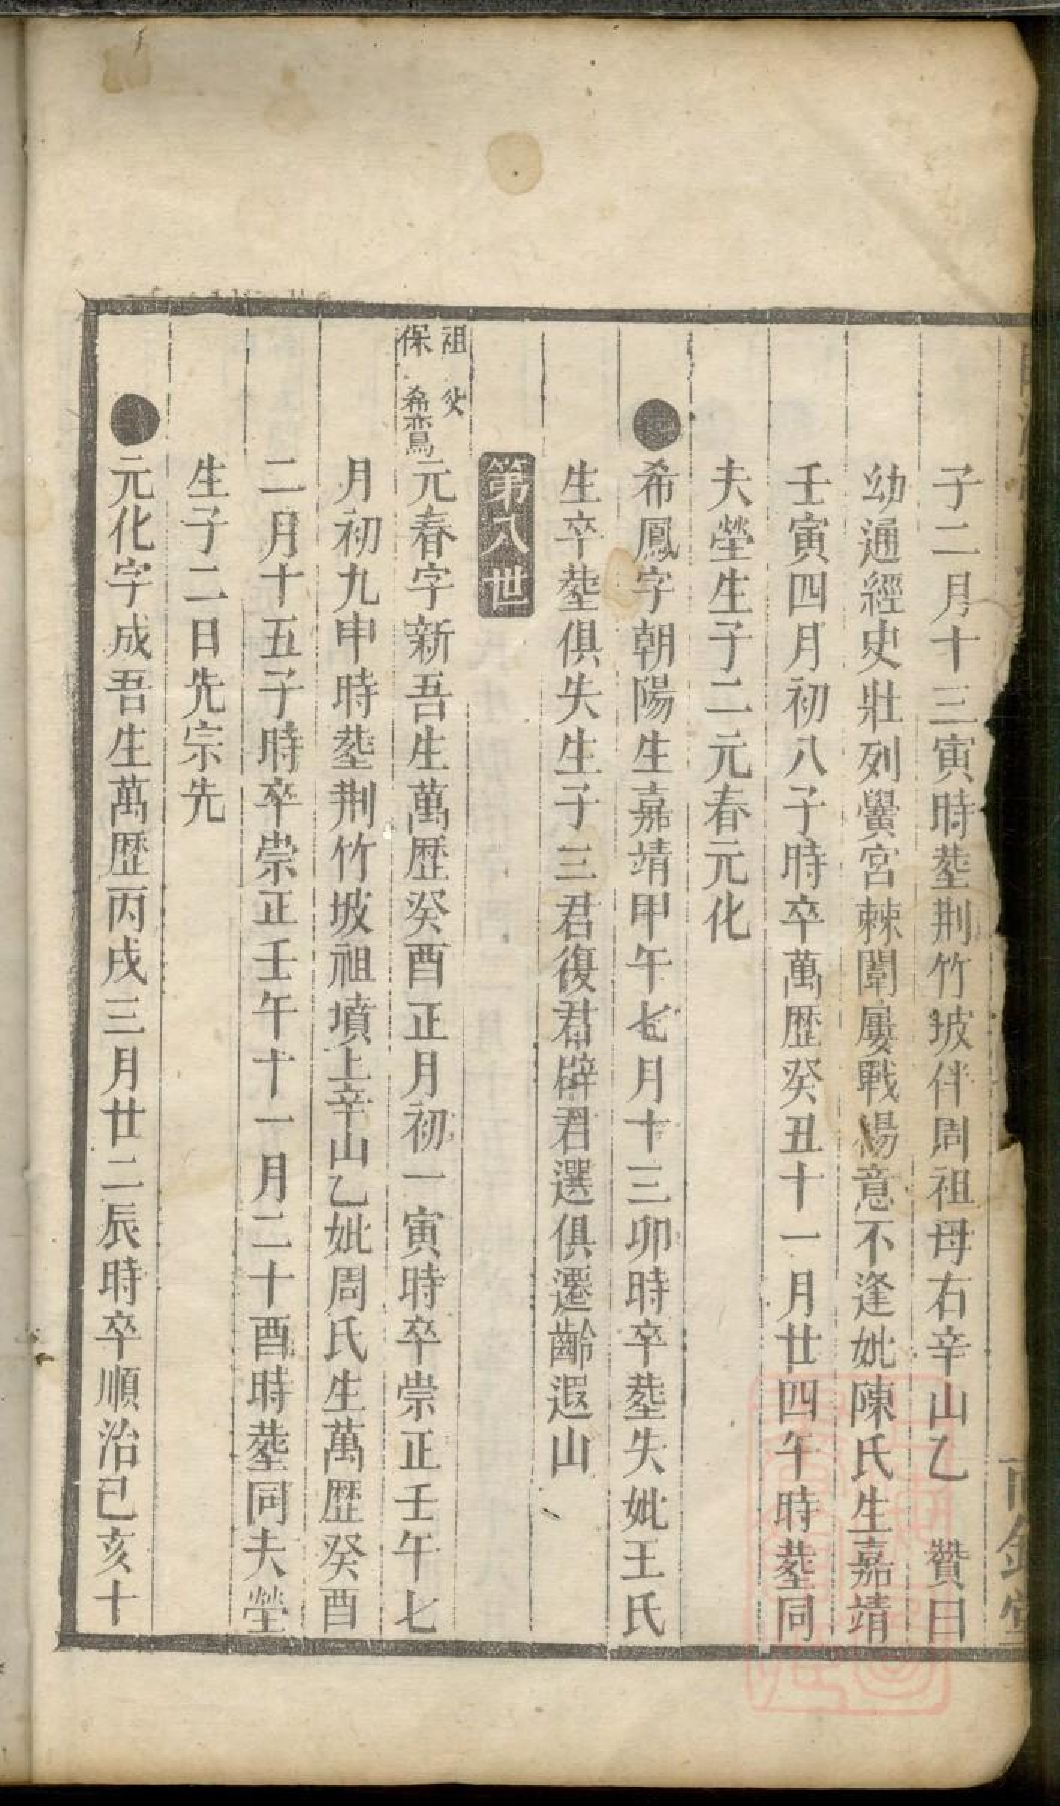 子二月十三寅時塟荆竹坡伴周祖母右辛山乙　贊曰
幼通經史壯列黌宮棘闈屢戰楊意不逢妣陳氏生嘉靖
壬寅四月初八子時卒萬歴癸丑十一月廿四午時塟同
夫塋生子二元春元化
●希鳳字朝陽生嘉靖甲午七月十三卯時卒塟失妣王氏
生卒塟俱失生子三君復君辟君選俱遷齡遐山
第八世
祖父
保希鸞
元春字新吾生萬歴癸酉正月初一寅時卒崇正壬午七
月初九申時塟荆竹坡祖墳上辛山乙妣周氏生萬歴癸酉
二月十五子時卒崇正壬午十一月二十酉時塟同夫塋
生子二日先宗先
●元化字成吾生萬歴丙戌三月廿二辰時卒順治己亥十